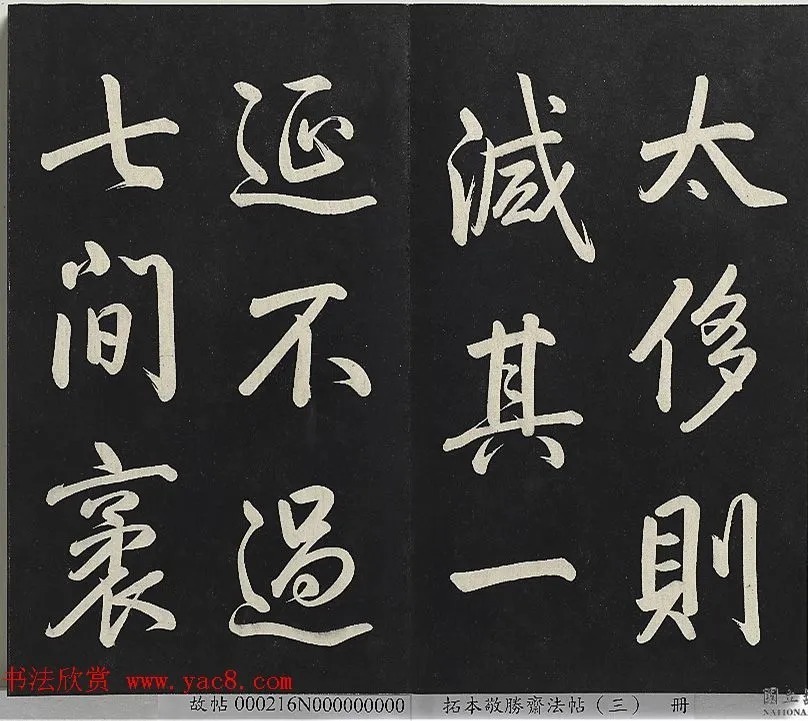 太侈則
減其一
延不過
七間袤
书法欣赏 www.yac8.com
故帖000216N000000000
拓本敬勝齋法帖(三) 冊
國立
NATIONA